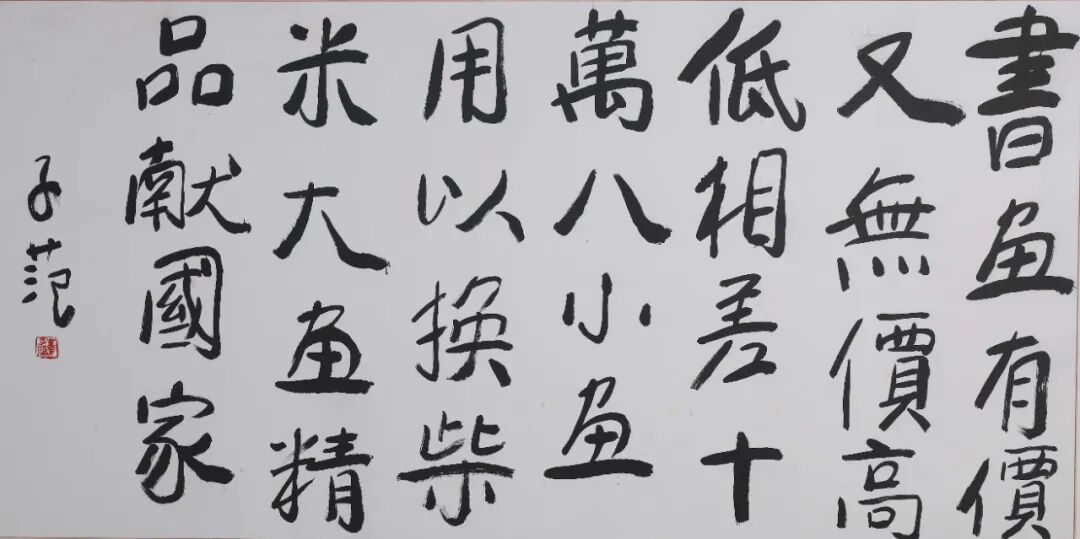 書画有價
又無價高
低相差十
萬八小画
用以换柴
米大画精
品献國家
子范